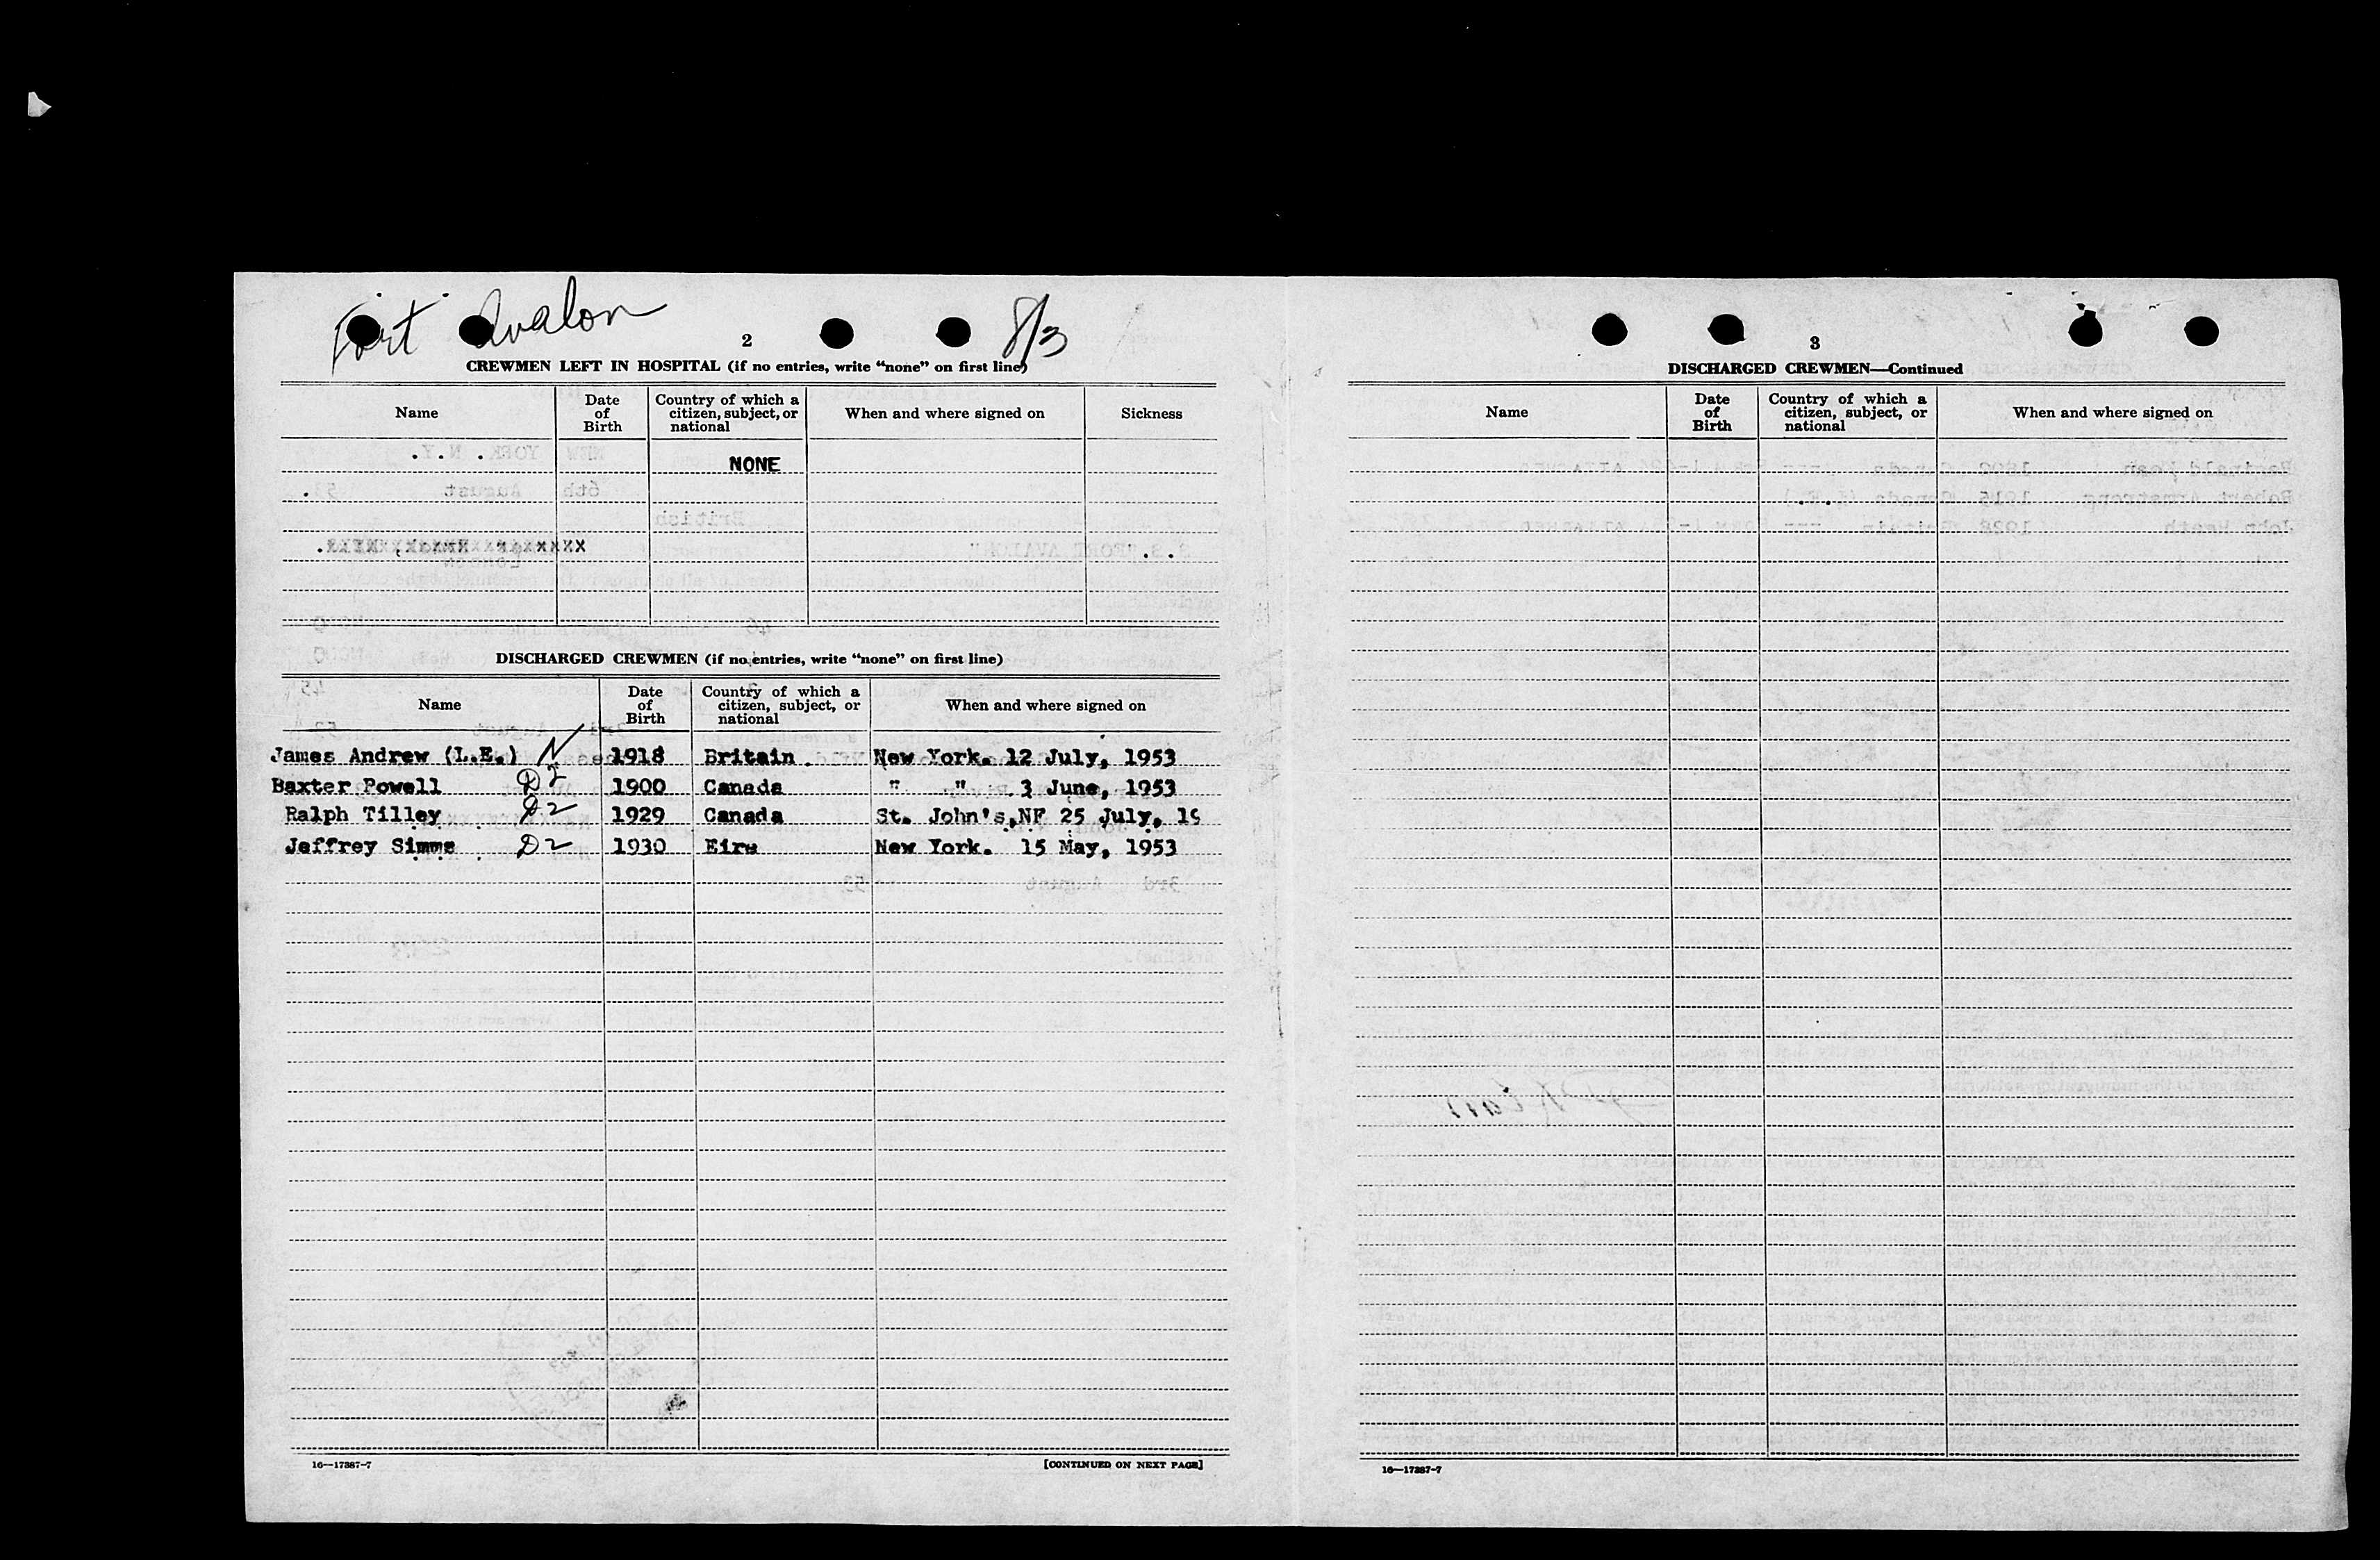 Fort Avalon
8/3
2
CREWMEN LEFT IN HOSPITAL (if no entries, write “none” on first line)
Name Date of Birth Country of which a citizen, subject, or national When and where signed on Sickness
NONE
DISCHARGED CREWMEN (if no entries, write “none” on first line)
Name Date of Birth Country of which a citizen, subject, or national When and where signed on
James Andrew (L.E.) N 1918 Britain New York. 12 July, 1953
Baxter Powell D2 1900 Canada " " 3 June, 1953
Ralph Tilley D2 1929 Canada St. John's,NF 25 July, 19
Jeffrey Simms D2 1930 Eire New York. 15 May, 1953
16—17387-7 [CONTINUED ON NEXT PAGE]
3
DISCHARGED CREWMEN—Continued
Name Date of Birth Country of which a citizen, subject, or national When and where signed on
16—17387-7